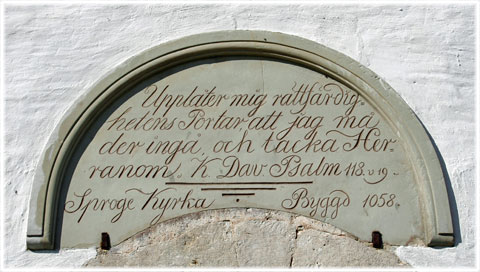 Upplåter mig rättfärdig-
hetens Portar, att jag må
der ingå, och tacka Her-
ranom. K. Dav. Psalm 118. v 19.
Sproge Kyrka Byggd 1058.